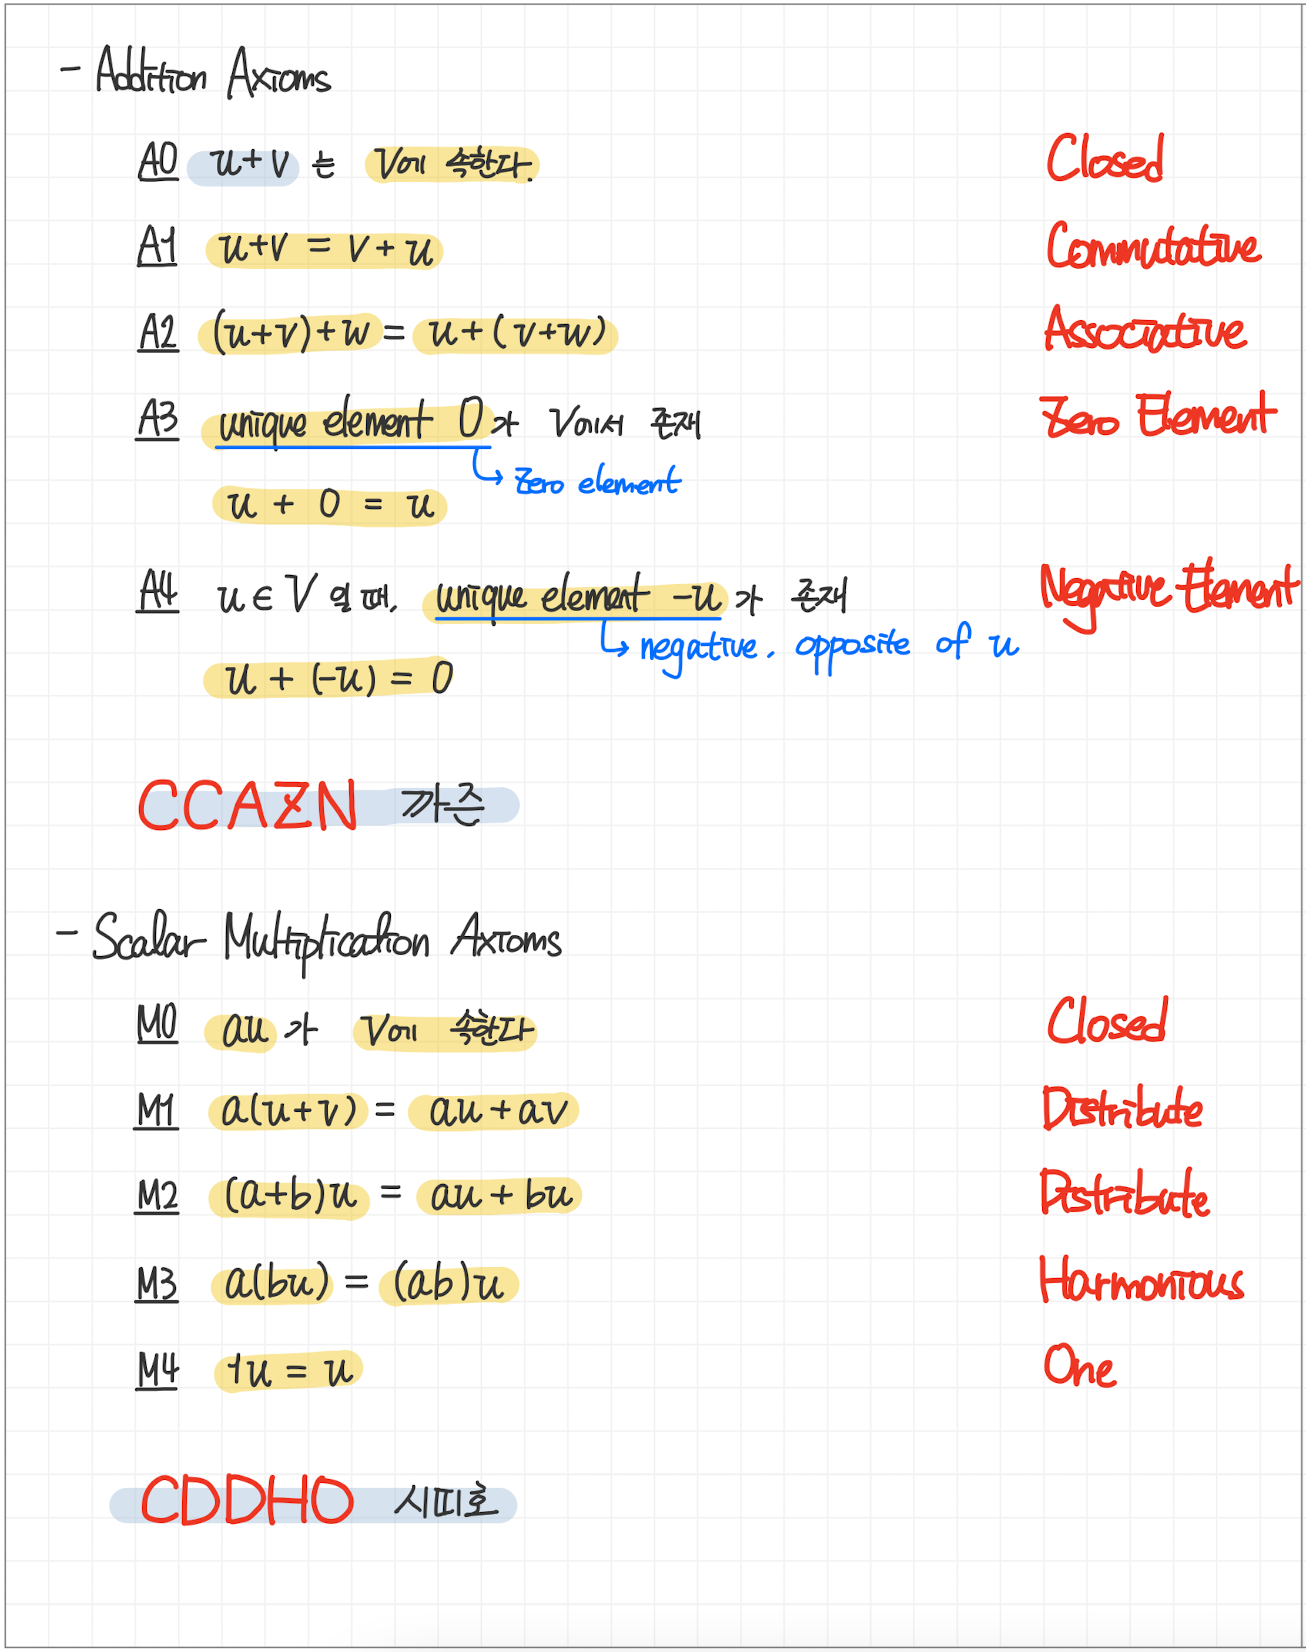 - Addition Axioms
A0 u+v 는 V에 속한다. Closed
A1 u+v = v+u Commutative
A2 (u+v)+w = u+(v+w) Associative
A3 unique element 0가 V에서 존재 Zero Element
zero element
u + 0 = u
A4 u∈V 일 때, unique element -u가 존재 Negative Element
negative, opposite of u
u + (-u) = 0
CCAZN 까즌
- Scalar Multiplication Axioms
M0 au가 V에 속한다 Closed
M1 a(u+v) = au+av Distribute
M2 (a+b)u = au+bu Distribute
M3 a(bu) = (ab)u Harmonious
M4 1u = u One
CDDHO 시띠호